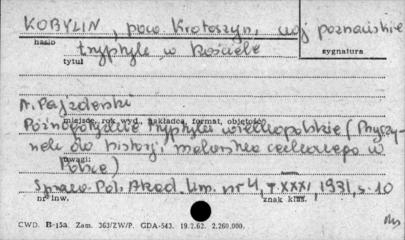 KOBYLIN, pow. Krotoszyn, woj poznańskie
hasło
tryptyk w kościele
sygnatura
tytuł
N. Pajzderski
miejsce, rok wyd., nakładca, format, objętość
Późnogotyckie tryptyki wielkopolskie (Przyczy-
nek do historji malarstwa cechowego w
uwagi:
Polsce)
Spraw. Pol. Akad. Um. nr 4, T. XXXI, 1931, s. 10
nr inw.
znak klas.
CWD. B-15a. Zam. 363/ZW/P. GDA-543. 19.2.62. 2.260.000.